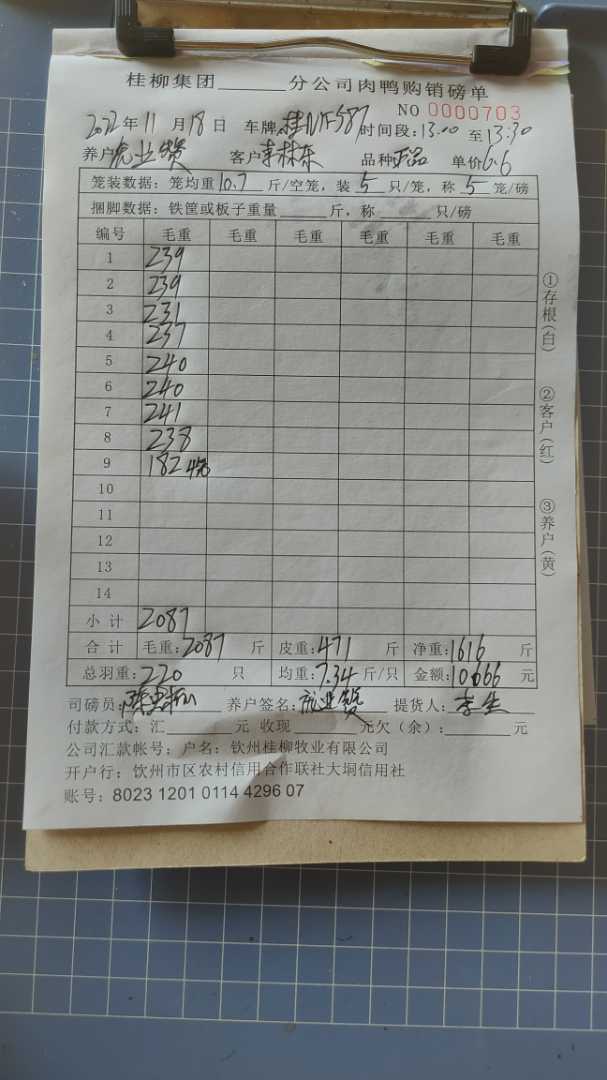 桂柳集团______分公司肉鸭购销磅单
NO 0000703
2022年11月18日 车牌:桂NF587 时间段:13:00至13:30
养户 客户李林东 品种正品 单价6.6
笼装数据：笼均重10.7斤/空笼，装5只/笼，称5笼/磅
捆脚数据：铁筐或板子重量______斤，称______只/磅
编号 毛重 毛重 毛重 毛重 毛重 毛重
1 239
2 239
3 231
4 237
5 240
6 240
7 241
8 238
9 182 4笼
10
11
12
13
14
小计 2087
合计 毛重:2087斤 皮重:471斤 净重:1616斤
总羽重:220只 均重:7.34斤/只 金额:10666元
司磅员: 养户签名: 提货人:李生
付款方式：汇______元 收现______元欠（余）:______元
公司汇款帐号；户名：钦州桂柳牧业有限公司
开户行：钦州市区农村信用合作联社大垌信用社
账号：8023 1201 0114 4296 07
①存根(白)
②客户(红)
③养户(黄)